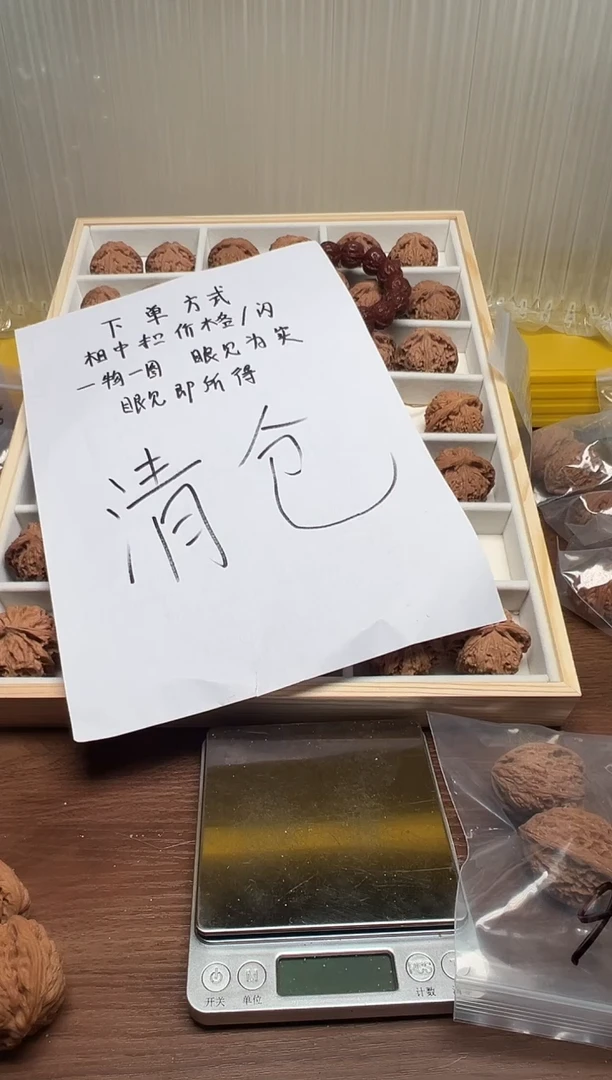 下单方式
相中扣价格/闪
一物一图 眼见为实
眼见即所得
清仓
开关
单位
计数